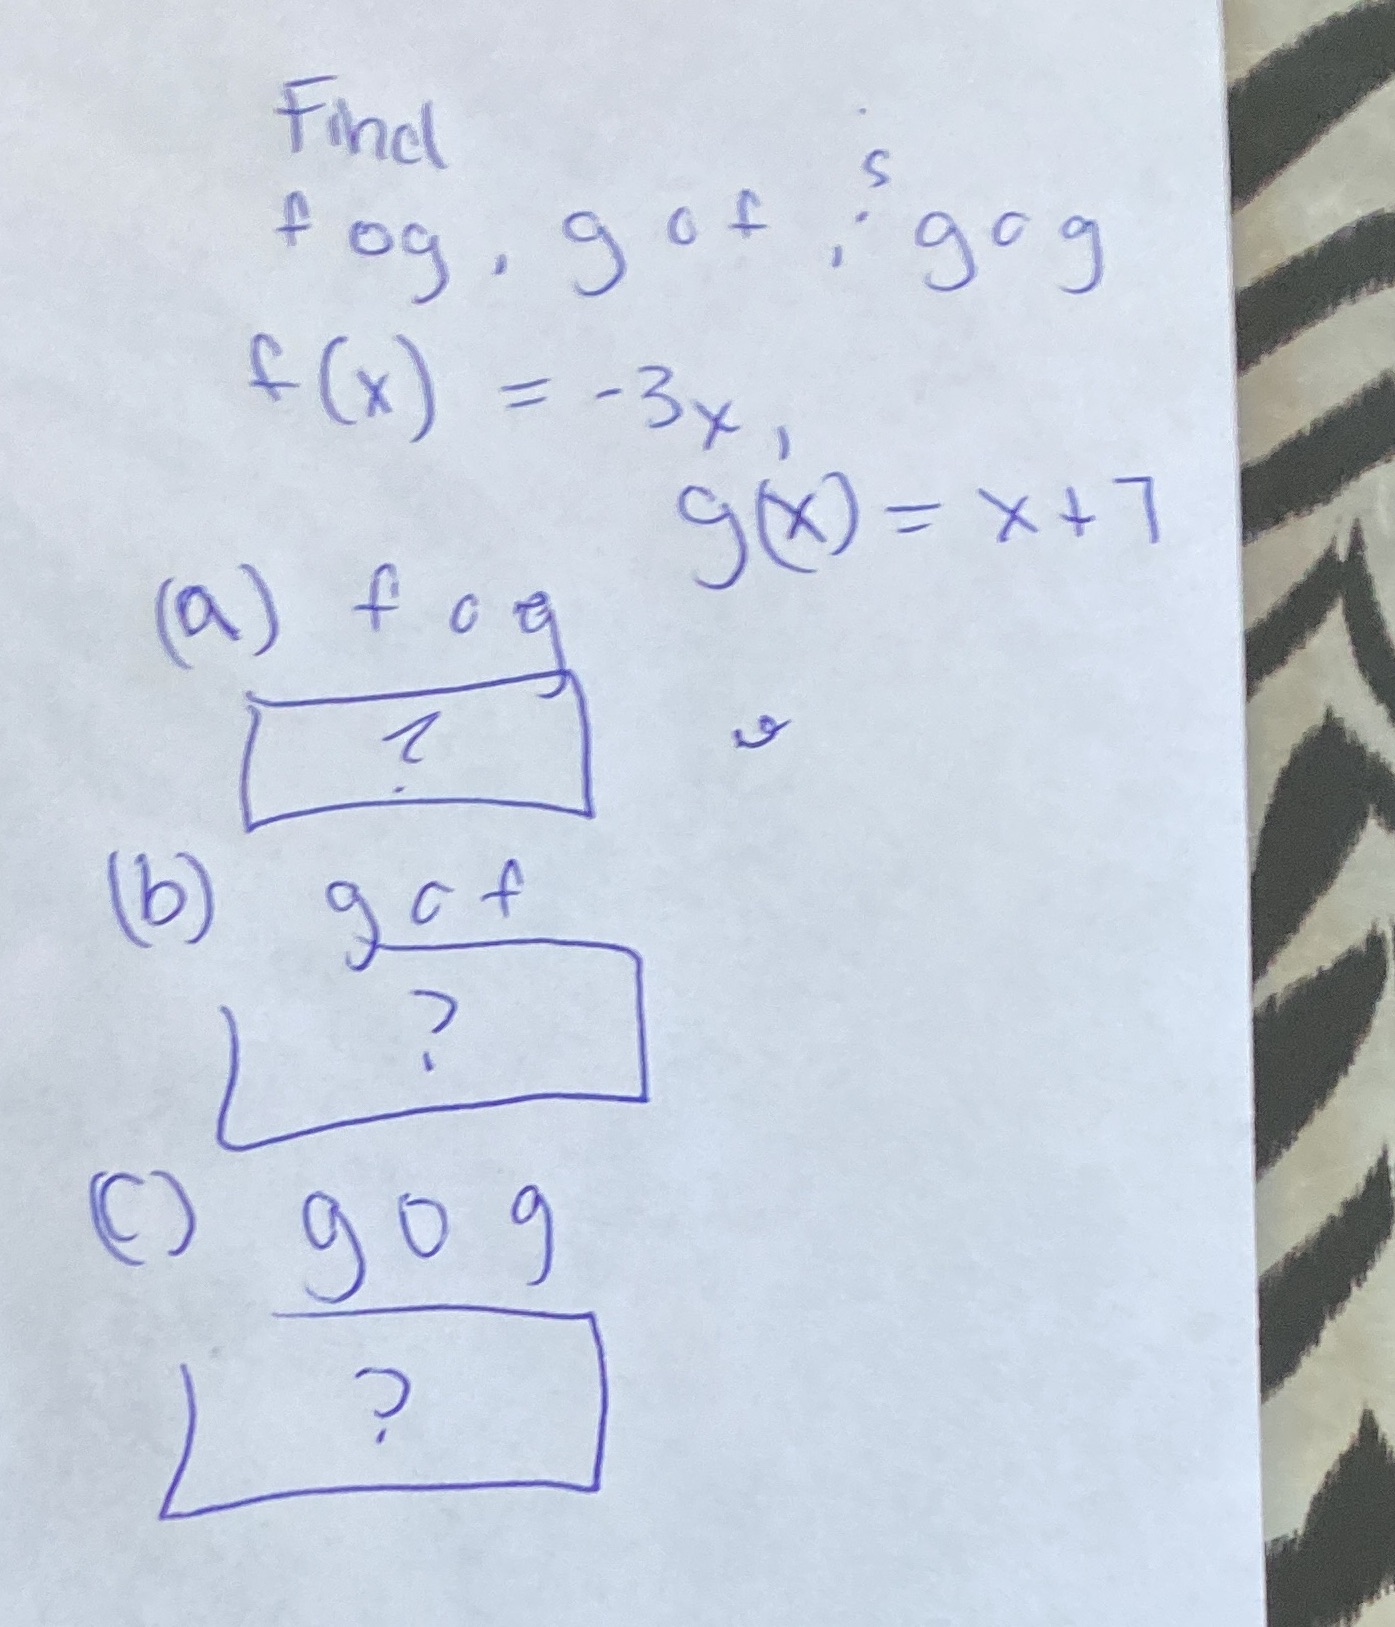 Find
f o g, g o f, g o g
f(x) = -3x,
g(x) = x + 7
(a) f o g
?
(b) g o f
?
(c) g o g
?